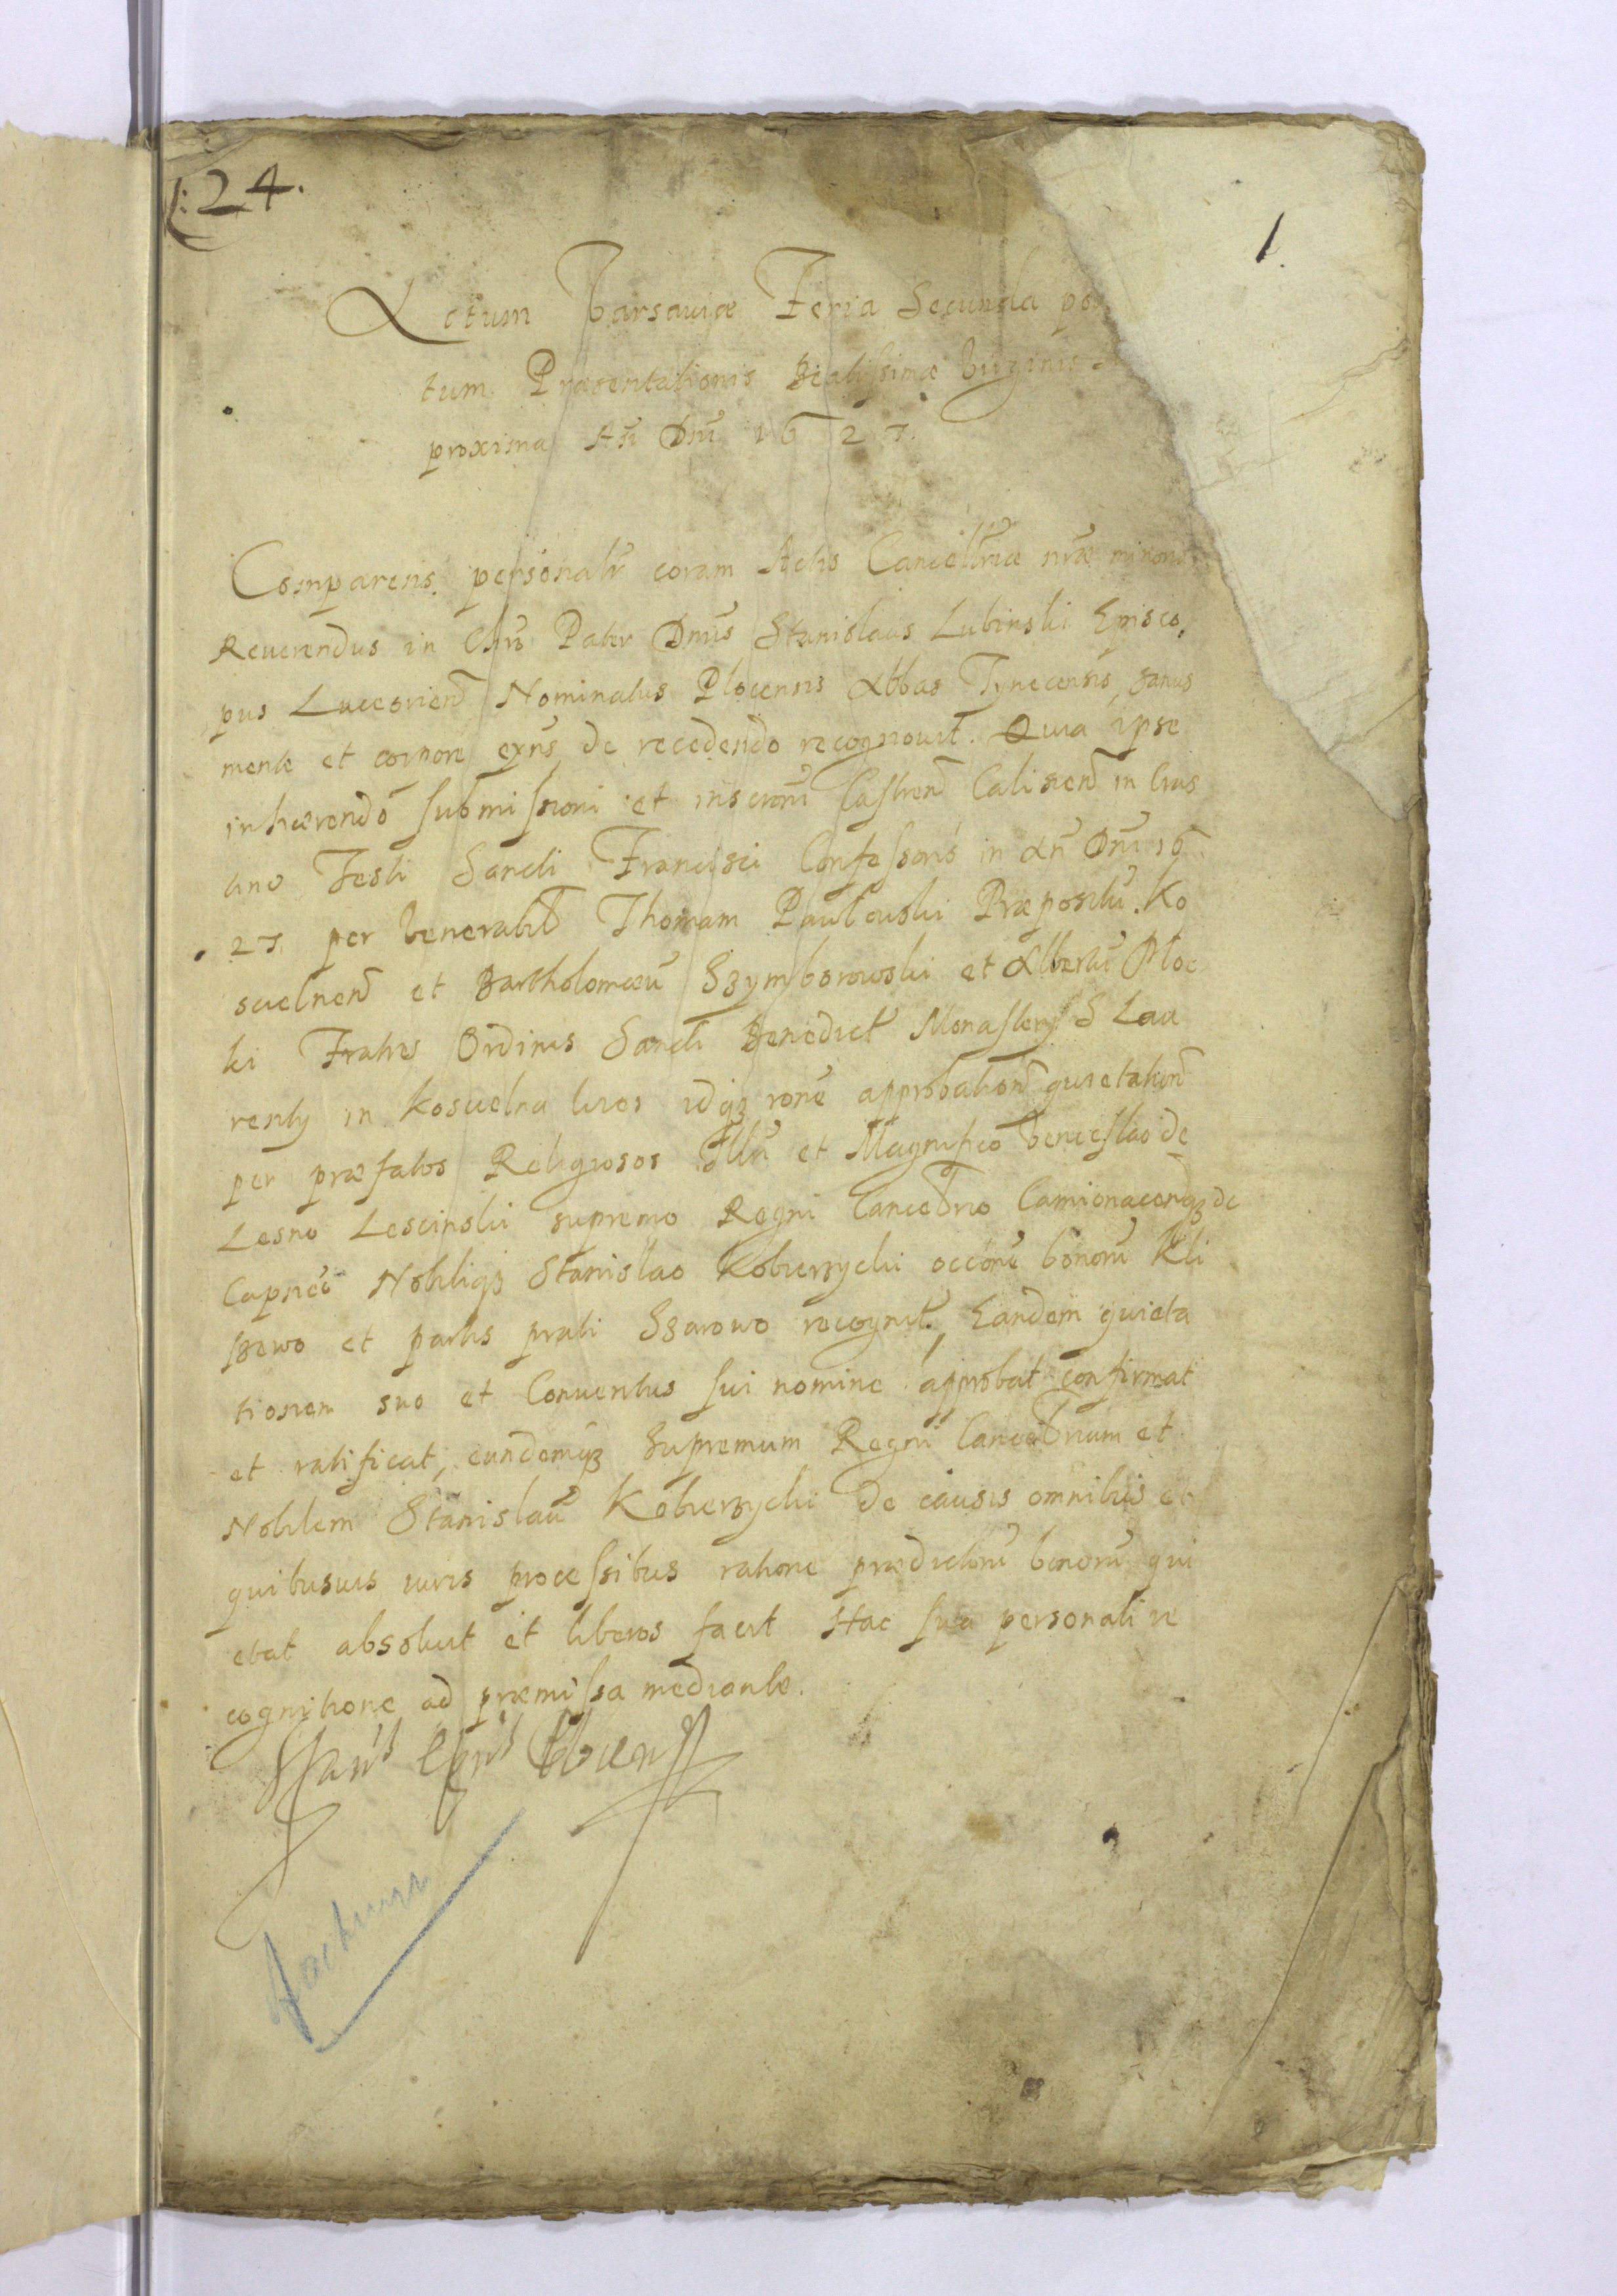 L: 24.
1.
Actum Varsaviæ Feria Secunda pos
tum Præsentationis Beatissimæ Virginis
proxima Añ Dñi 1627.
Comparens personalr̃ coram Actis Cancellr̃iæ nr̃æ minoris
Reuerendus in Chrõ Pater Dñus Stanislaus Lubinski Episco,
pus Luceorieñ Nominatus Plocensis Abbas Tynecensis, sanus
mente et corpore exñs de recedendo recognouit. Quia ipse
inhærendo submissioni et inscrõni Castreñ Calisieñ in Cras
tino Festi Sancti Francisci Confessoris in Añ Dñi 16
27. per Venerabileᷤ Thomam Paulouski Præpositũ Ko
scielneñ et Bartholomæũ Szymborowski et Albertũ Ploc
ki Fratres Ordinis Sancti Benedicti Monastery S Lau
renty in Koscielna Vies idqꝫ rõne approbationᷤ quietationᷤ
per præfatos Religiosos Illr̃i et Magnifico Venceslao de
Lesno Lescinski supremo Regni Cancellr̃io Camionaceñqꝫ de
Capneõ Nobiliqꝫ Stanislao Kobierzycki occõne bonorũ Kli
szewo et partis prati Szarowo recognit., Eandem quieta
tionem suo et Conuentus sui nomine approbat confirmat
et ratificat, eundemqꝫ Supremum Regni Cancellr̃ium et
Nobilem Stanislaũ Kobierzycki de causis omnibus et
quibusuis iuris processibus ratione prædictorũ bonorũ qui
etat absoluit et liberos facit Hac sua personali re
cognitione ad præmissa mediante.
Stanˢ Epũs Plocenˢ